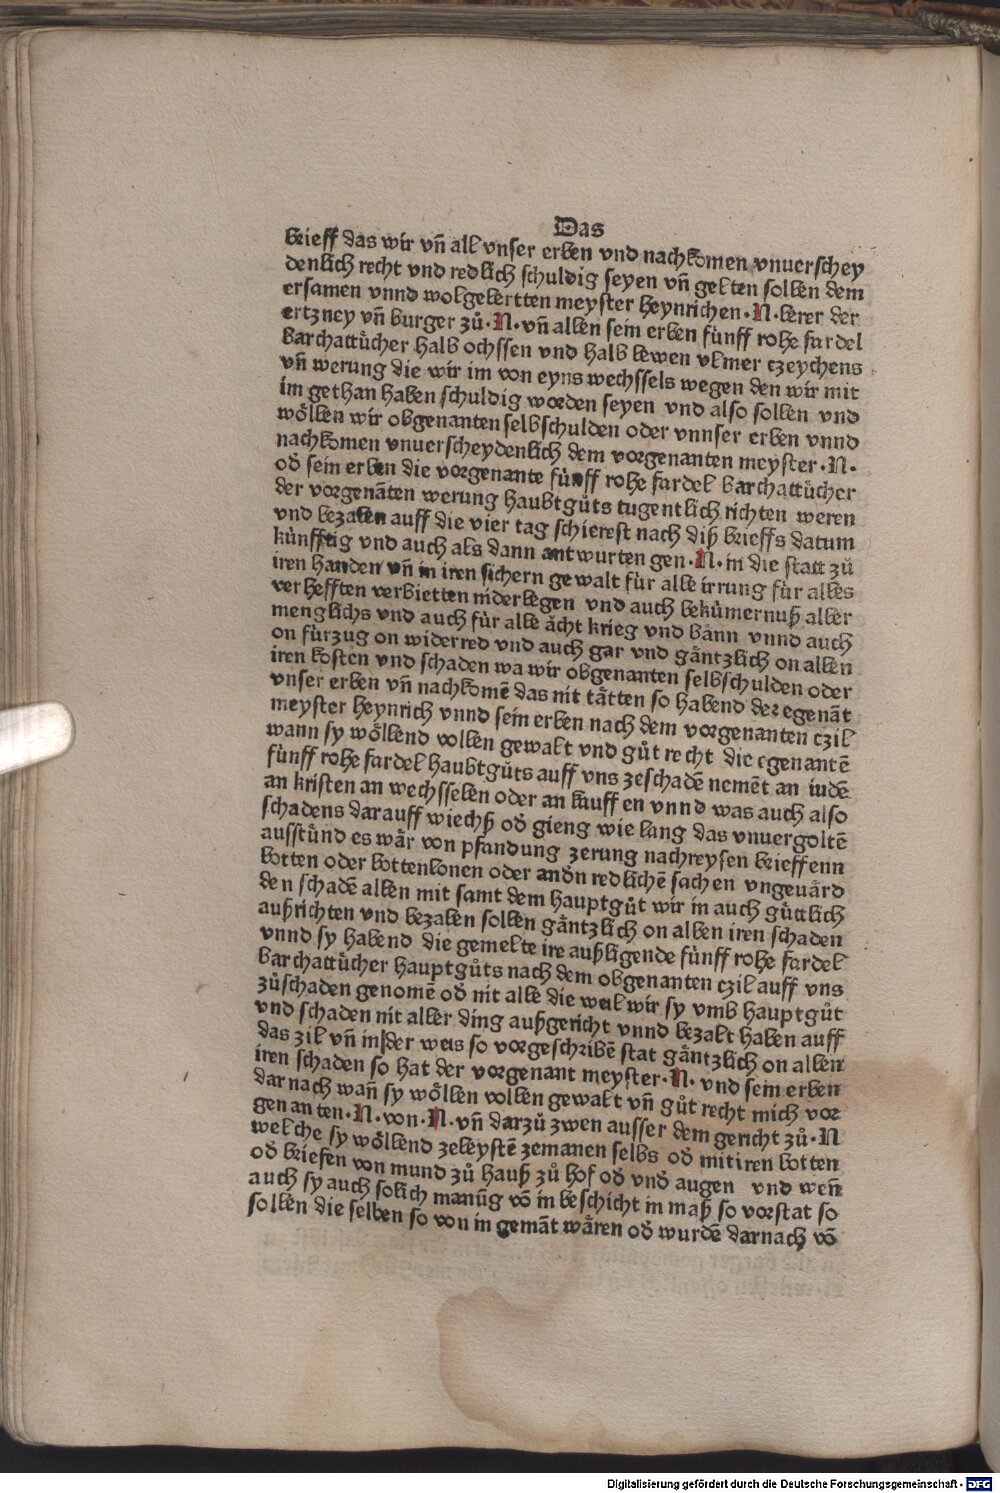 Das
brieff das wir vñ all vnser erben vnd nachkomen vnuerschey
denlich recht vnd redlich schuldig seyen vñ gelten sollen dem
ersamen vnnd wolgelertten meyster heynrichen · N · lerer der
ertzney vñ burger zů · N · vñ allen sein erben fünff rohe fardel
barchattůcher halb ochssen vnd halb lewen vlmer czeychens
vñ werung die wir im von eyns wechssels wegen den wir mit
im gethan haben schuldig worden seyen vnd also sollen vnd
wöllen wir obgenanten selbschulden oder vnnser erben vnnd
nachkomen vnuerscheydenlich dem vorgenanten meyster · N ·
oď sein erben die vorgenante fünff rohe fardel barchattůcher
der vorgenãten werung haubtgůts tugentlich richten weren
vnd bezalen auff die vier tag schierest nach diß brieffs datum
künfftig vnd auch als dann antwurten gen · N · in die statt zů
iren handen vñ in iren sichern gewalt für alle irrung für alles
verhefften verbietten niderlegen vnd auch bekümernuß aller
menglichs vnd auch für alle ächt krieg vnd bänn vnnd auch
on fürzug on widerred vnd auch gar vnd gäntzlich on allen
iren kosten vnd schaden wa wir obgenanten selbschulden oder
vnser erben vñ nachkomē das nit tätten so habend der egenãt
meyster heynrich vnnd sein erben nach dem vorgenanten czil
wann sy wöllend vollen gewalt vnd gůt recht die egenantē
fünff rohe fardel haubtgůts auff vns zeschadē nemēt an iudē
an kristen an wechsselen oder an kauffen vnnd was auch also
schadens darauff wiechß oď gieng wie lang das vnuergoltē
ausstůnd es wär von pfandung zerung nachreysen brieffenn
botten oder bottenlonen oder anďn redlichē sachen vngeuärd
den schadē allen mit samt dem hauptgůt wir in auch gůttlich
außrichten vnd bezalen sollen gäntzlich on allen iren schaden
vnnd sy habend die gemelte ire außligende fünff rohe fardel
barchattůcher hauptgůts nach dem obgenanten czil auff vns
zůschaden genomē oď nit alle die weil wir sy vmb hauptgůt
vnd schaden nit aller ding außgericht vnnd bezalt haben auff
das zil vñ in der weis so vorgeschribē stat gäntzlich on allen
iren schaden so hat der vorgenant meyster · N · vnd sein erben
darnach wañ sy wöllen vollen gewalt vñ gůt recht mich vor
genanten · N · von · N · vñ darzů zwen ausser dem gericht zů · N
welche sy wöllend zeleystē zemanen selbs oď mit iren botten
oď briefen von mund zů hauß zů hof oď vnď augen vnd weñ
auch sy auch solich manūg võ in beschicht in maß so vorstat so
sollen die selben so von in gemãt wären oď wurdē darnach võ
Digitalisierung gefördert durch die Deutsche Forschungsgemeinschaft - DFG